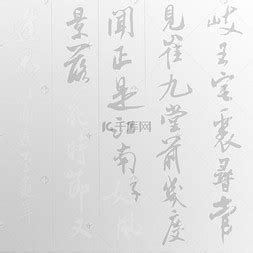 岐王宅裏尋常
見崔九堂前幾度
聞正是江南好風
景落花時節又
千库网